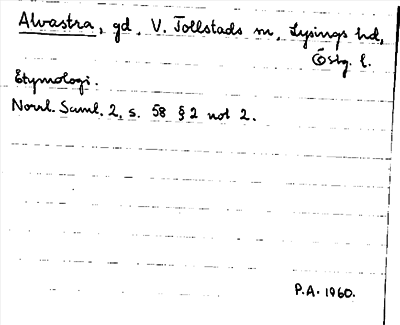 Alvastra, gd, V. Tollstads sn, Lysings hd,
Östg. l.
Etymologi.
Norrl. Saml. 2, s. 58 § 2 not 2.
P.A. 1960.